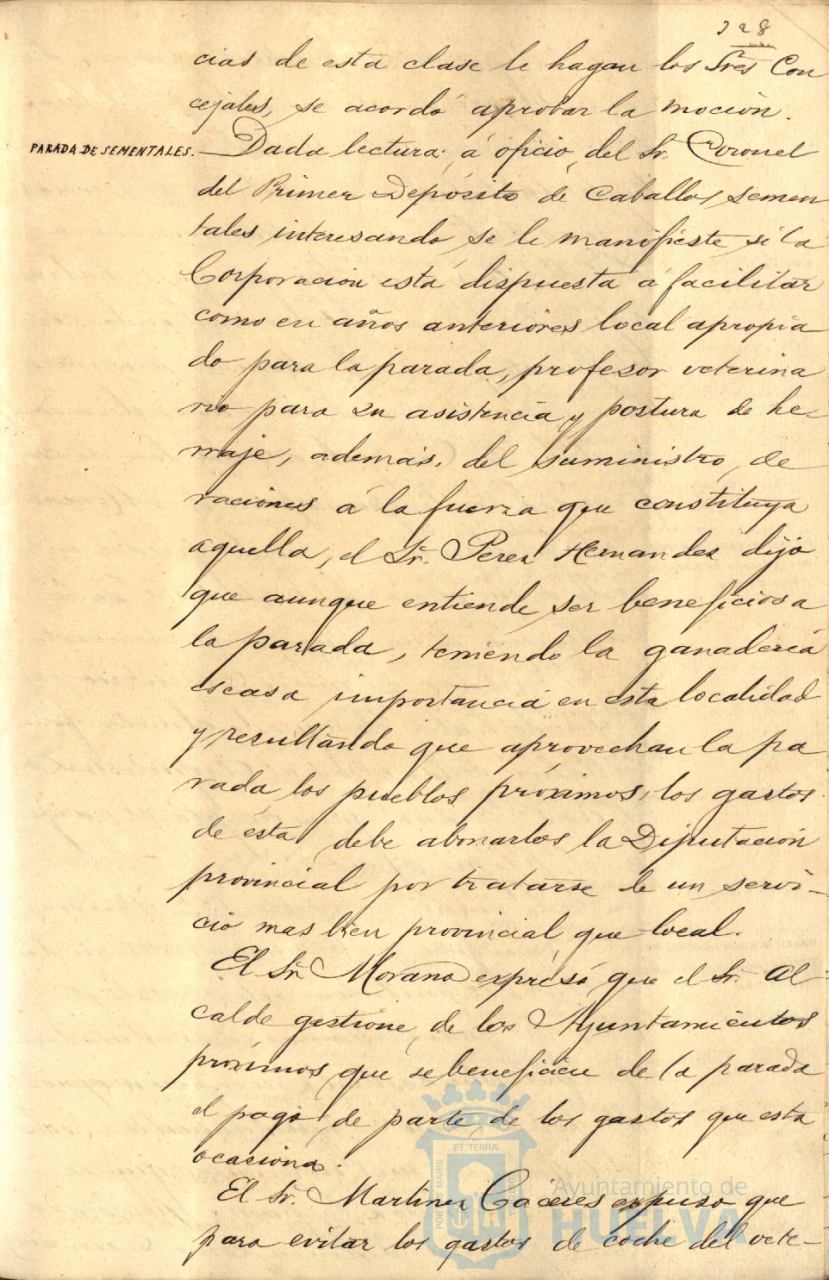 328
cias de esta clase le hagan los Sres Con
cejales, se acordó aprobar la moción.
PARADA DE SEMENTALES.
Dada lectura á oficio del Sr. Coronel
del Primer Depósito de Caballos semen
tales interesando se le manifieste si la
Corporación está dispuesta á facilitar
como en años anteriores local apropia
do para la parada, profesor veterina
rio para su asistencia y postura de he-
rraje, además del suministro de
raciones á la fuerza que constituya
aquella, el Sr. Perez Hernandez dijo
que aunque entiende ser beneficiosa
la parada, teniendo la ganadería
escasa importancia en esta localidad
y resultando que aprovechan la pa
rada los pueblos próximos, los gastos
de ésta debe abonarlos la Diputación
provincial por tratarse de un servi-
cio mas bien provincial que local.
El Sr. Morano expresó que el Sr. Al
calde gestione de los Ayuntamientos
próximos que se beneficien de la parada
el pago de parte de los gastos que esta
ocasiona.
El Sr. Martinez Caceres expuso que
para evitar los gastos de coche del vete-
POR MARIS
ET TERRÆ
Ayuntamiento de
HUELVA